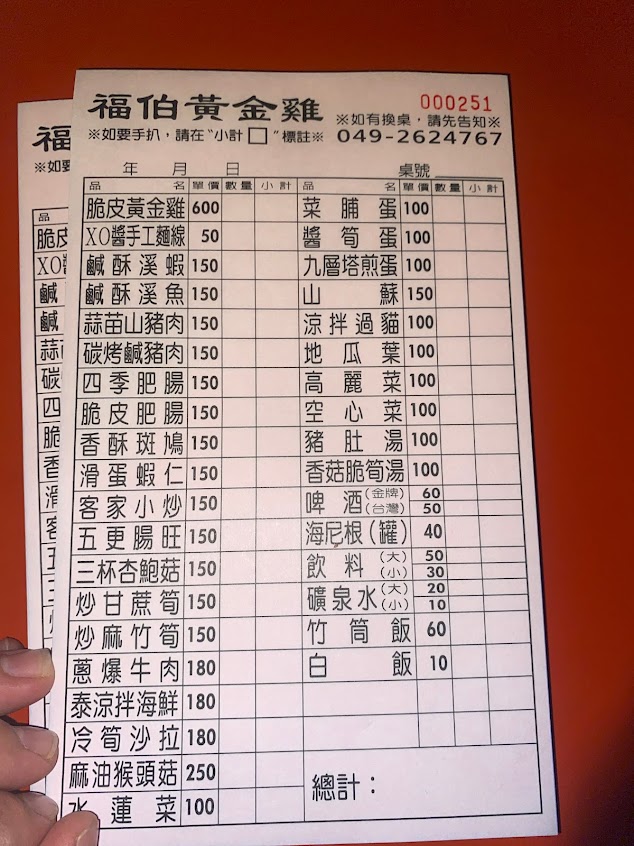 福伯黃金雞
000251
※如有換桌，請先告知※
※如要手扒，請在“小計□”標註※ 049-2624767
年 月 日 桌號
品名 單價 數量 小計 品名 單價 數量 小計
脆皮黃金雞 600 菜脯蛋 100
XO醬手工麵線 50 醬筍蛋 100
鹹酥溪蝦 150 九層塔煎蛋 100
鹹酥溪魚 150 山蘇 150
蒜苗山豬肉 150 涼拌過貓 100
碳烤鹹豬肉 150 地瓜葉 100
四季肥腸 150 高麗菜 100
脆皮肥腸 150 空心菜 100
香酥斑鳩 150 豬肚湯 100
滑蛋蝦仁 150 香菇脆筍湯 100
客家小炒 150 啤酒(金牌) 60
(台灣) 50
五更腸旺 150 海尼根(罐) 40
三杯杏鮑菇 150 飲料(大) 50
(小) 30
炒甘蔗筍 150 礦泉水(大) 20
(小) 10
炒麻竹筍 150 竹筒飯 60
蔥爆牛肉 180 白飯 10
泰涼拌海鮮 180
冷筍沙拉 180
麻油猴頭菇 250 總計：
水蓮菜 100
福
※如要
品
脆皮
XO醬
鹹
鹹
蒜苗
碳
四
脆
香
滑
客
五
三